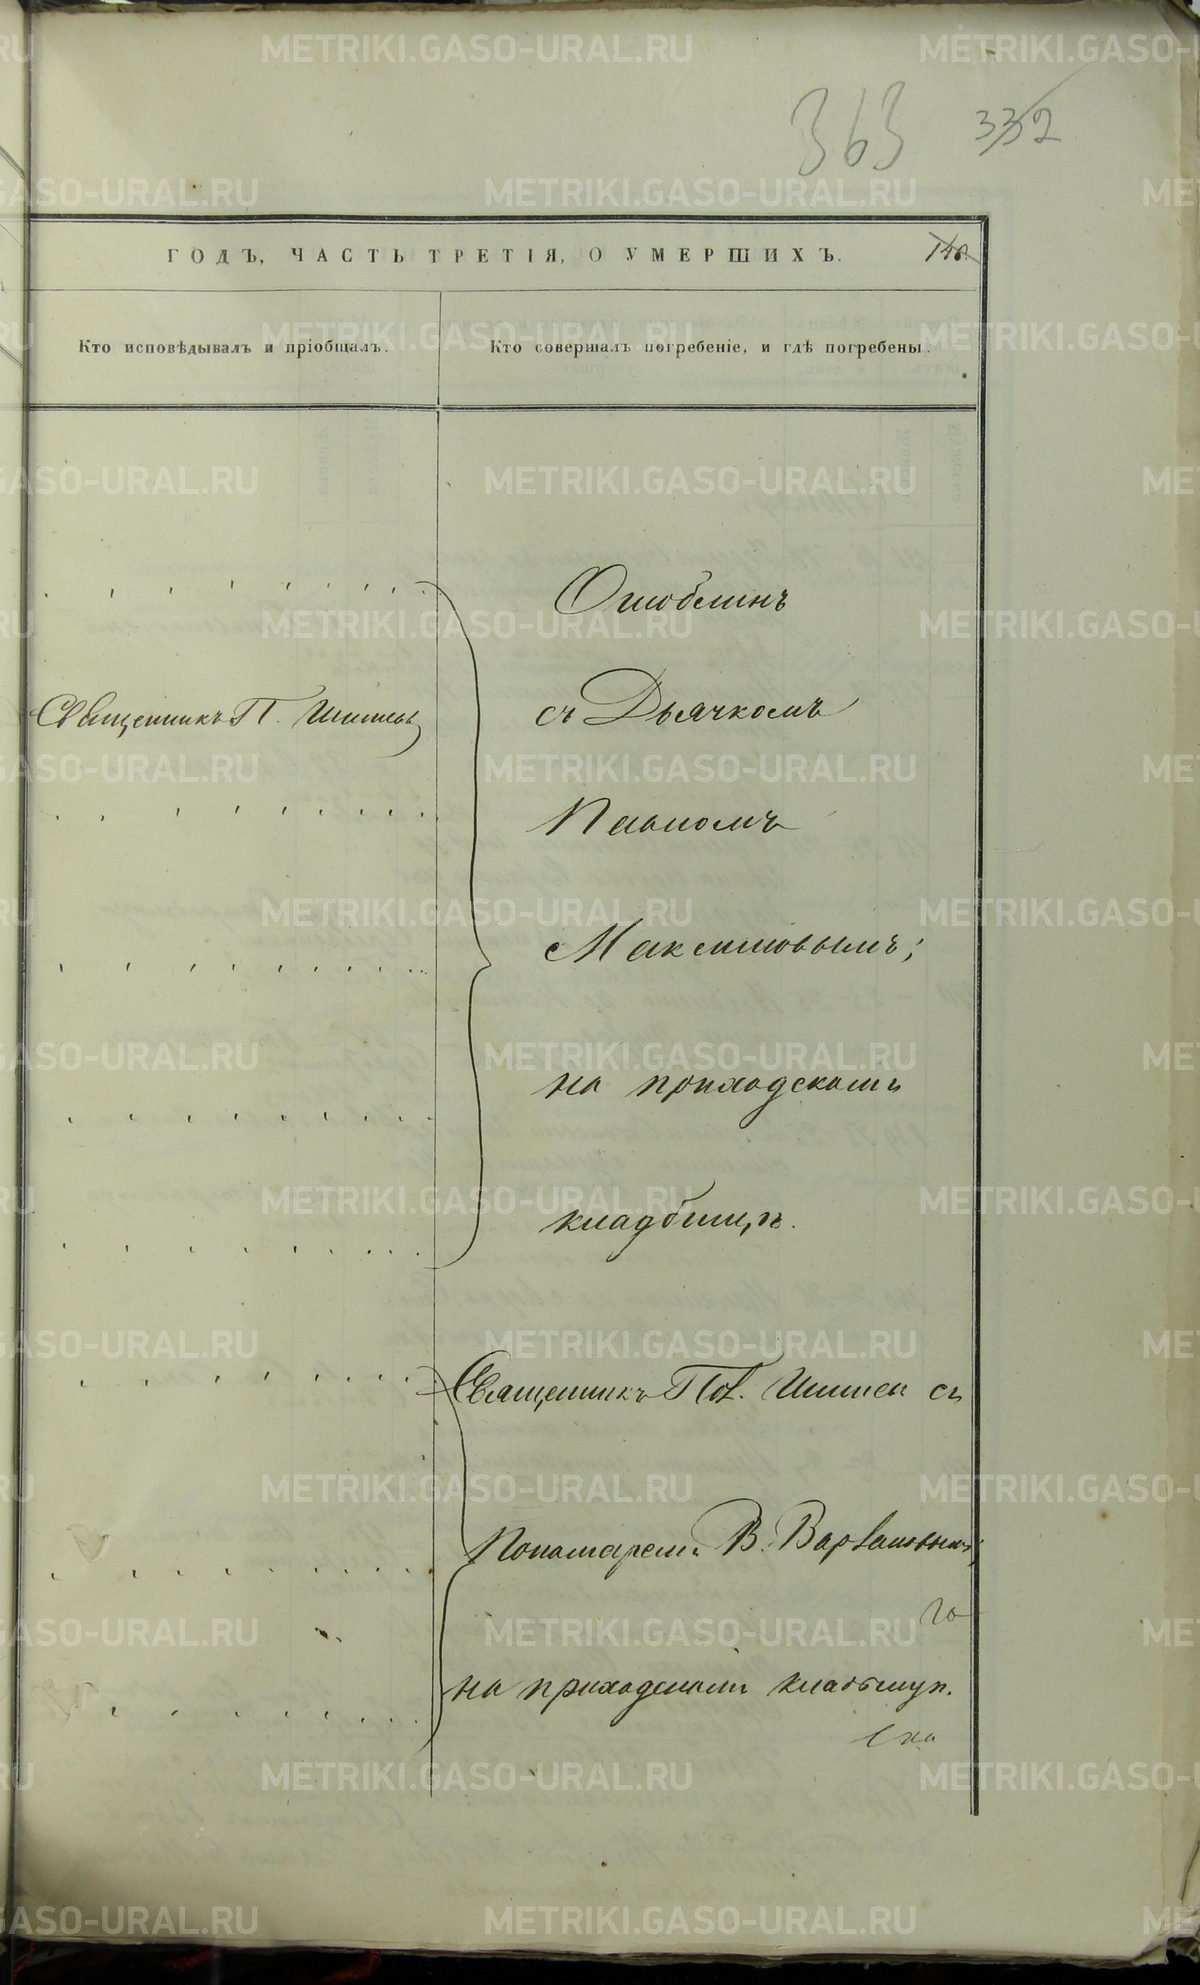 363 332
ГОДЪ, ЧАСТЬ ТРЕТІЯ, О УМЕРШИХЪ.
Кто исповѣдывалъ и пріобщалъ.
Кто совершалъ погребеніе, и гдѣ погребены.
Священникъ П.
съ Дьячкомъ
Павломъ
Максимовымъ;
на приходскомъ
кладбищѣ.
Священникъ съ
Пономаремъ В.
на приходскомъ кладбищѣ.
METRIKI.GASO-URAL.RU